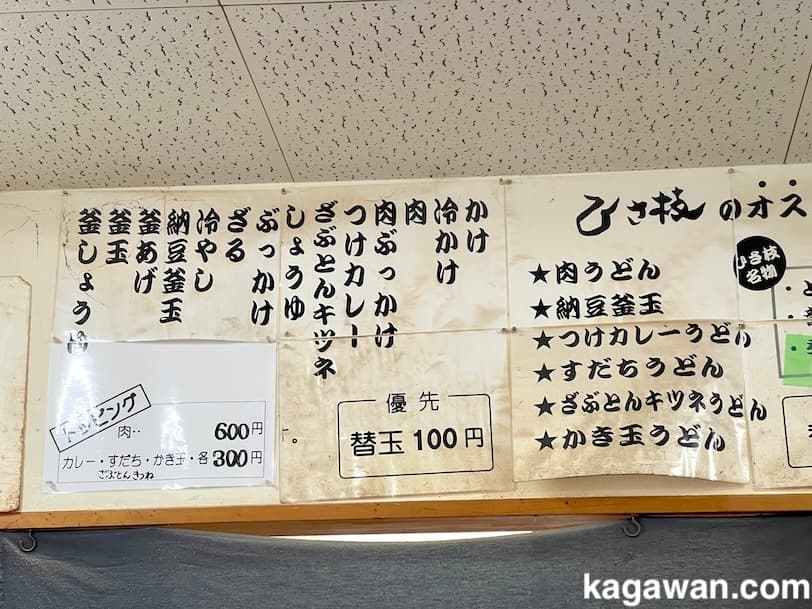 ひさ枝のオス
ひさ枝
名物
★肉うどん
★納豆釜玉
★つけカレーうどん
★すだちうどん
★ざぶとんキツネうどん
★かき玉うどん
かけ
冷かけ
肉
肉ぶっかけ
つけカレー
ざぶとんキツネ
しょうゆ
ぶっかけ
ざる
冷やし
納豆釜玉
釜あげ
釜玉
釜しょうゆ
優先
替玉100円
トッピング
肉‥ 600円
カレー・すだち・かき玉・各300円
ざぶとんきつね
kagawan.com